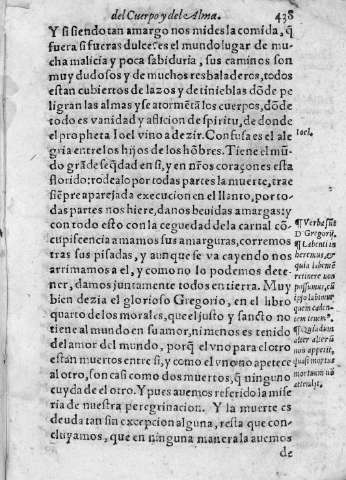 del Cuerpo y del Alma. 438
Y si siendo tan amargo nos mides la comida, q̃
fuera si fueras dulce: es el mundo lugar de mu-
cha malicia y poca sabiduria, sus caminos son
muy dudosos y de muchos resbaladeros, todos
estan cubiertos de lazos y de tinieblas dõde pe-
ligran las almas y se atormẽtã los cuerpos, dõde
todo es vanidad y aflicion de spiritu, de donde
el propheta Ioel vino a dezir. Confusa es el ale
gria entre los hijos de los hõbres. Tiene el mũ-
do grã de seq̃dad en si, y en nr̃os coraçones esta
florido: rodealo por todas partes la muerte, trae
siẽpre aparejada execucion en el llanto, por to-
das partes nos hiere, danos beuidas amargas: y
con todo esto con la ceguedad de la carnal cõ-
cupiscencia amamos sus amarguras, corremos
tras sus pisadas, y aunque se va cayendo nos
arrimamos a el, y como no lo podemos dete-
ner, damos juntamente todos en tierra. Muy
bien dezia el glorioso Gregorio, en el libro
quarto de los morales, que el justo y sancto no
tiene al mundo en su amor, ni menos es tenido
del amor del mundo, porq̃ el vno para el otro
estan muertos entre si, y como el vno no apetece
al otro, son casi como dos muertos, q̃ ninguno
cuyda de el otro. Y pues auemos referido la mise
ria de nuestra peregrinacion. Y la muerte es
deuda tan sin excepcion alguna, resta que con-
cluyamos, que en ninguna manera la auemos
de
Ioel.
¶ Verba sũt
D Gregorii.
¶ Labenti in
heremus, &
quia labentẽ
retinere non
possumus, cũ
ipso labimur
quem caden-
tem tenem9.
¶ Quia dum
alter alterũ
non appetit,
quasi mortus
mortuum nõ
attendit.